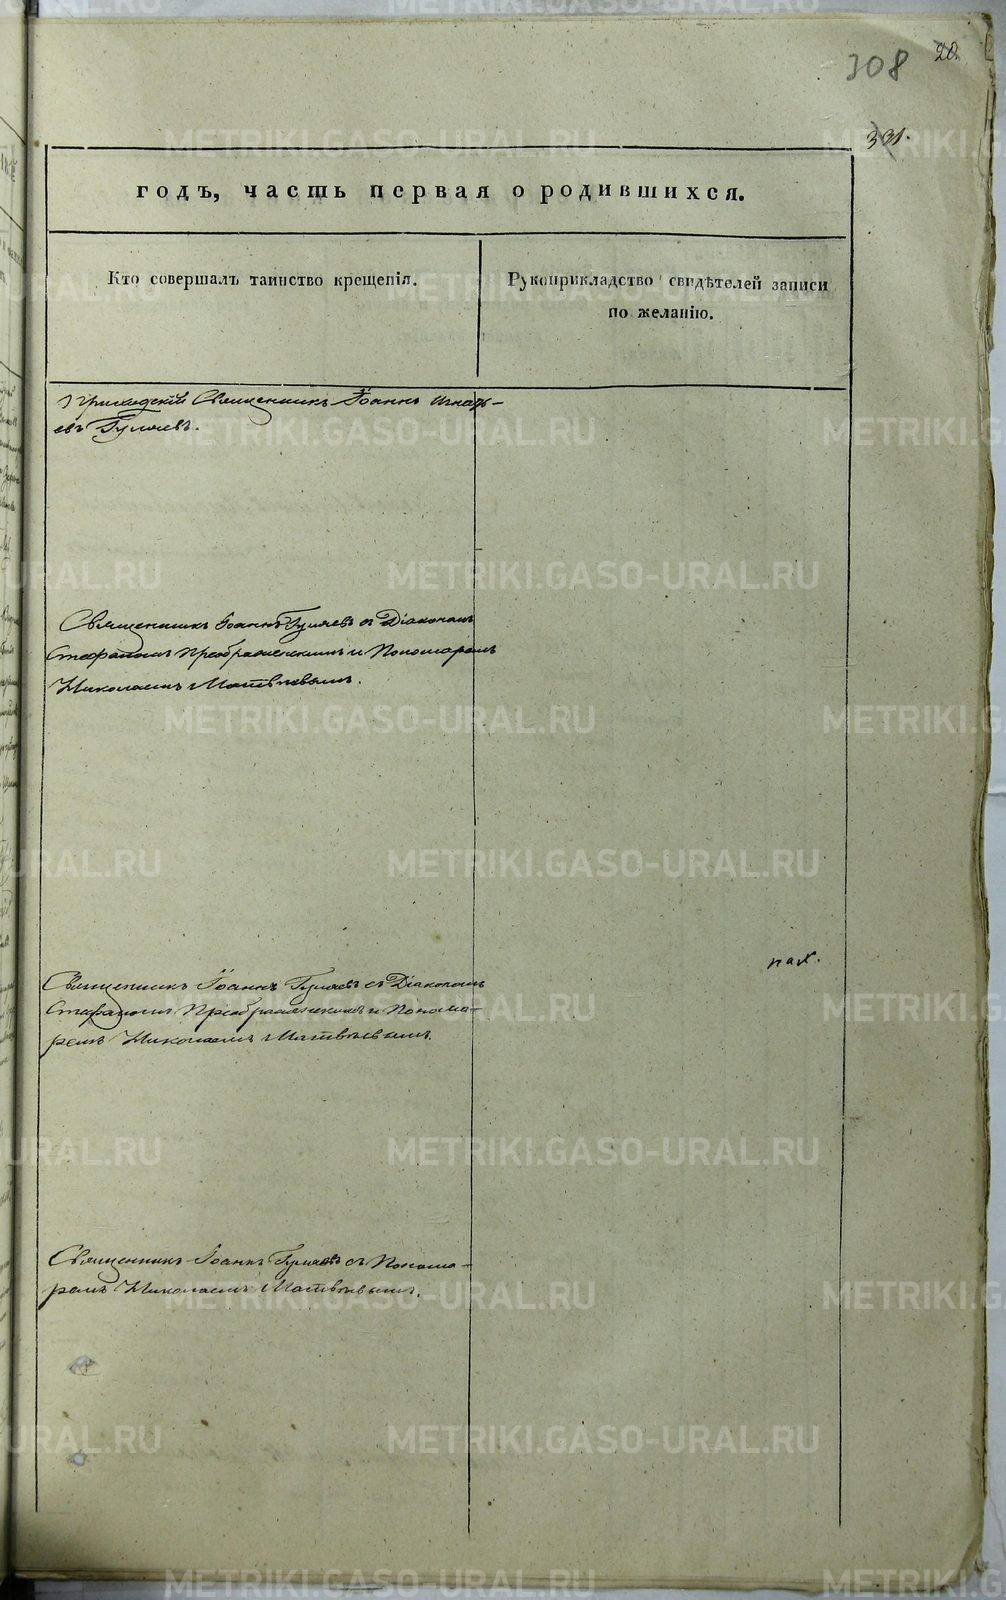 308 20.
331.
годъ, часть первая о родившихся.
Кто совершалъ таинство крещенія.
Рукоприкладство свидѣтелей записи
по желанію.
Приходскій Священникъ Іоаннъ Игнатьевъ
евъ Гуляевъ.
Священникъ Іоаннъ Гуляевъ съ Діакономъ
Стефаномъ Преображенскимъ и Пономаремъ
Николаемъ Матвѣевымъ.
пах.
Священникъ Іоаннъ Гуляевъ съ Діакономъ
Стефаномъ Преображенскимъ и Понома-
ремъ Николаемъ Матвѣевымъ.
Священникъ Іоаннъ Гуляевъ съ Понома-
ремъ Николаемъ Матвѣевымъ.
METRIKI.GASO-URAL.RU